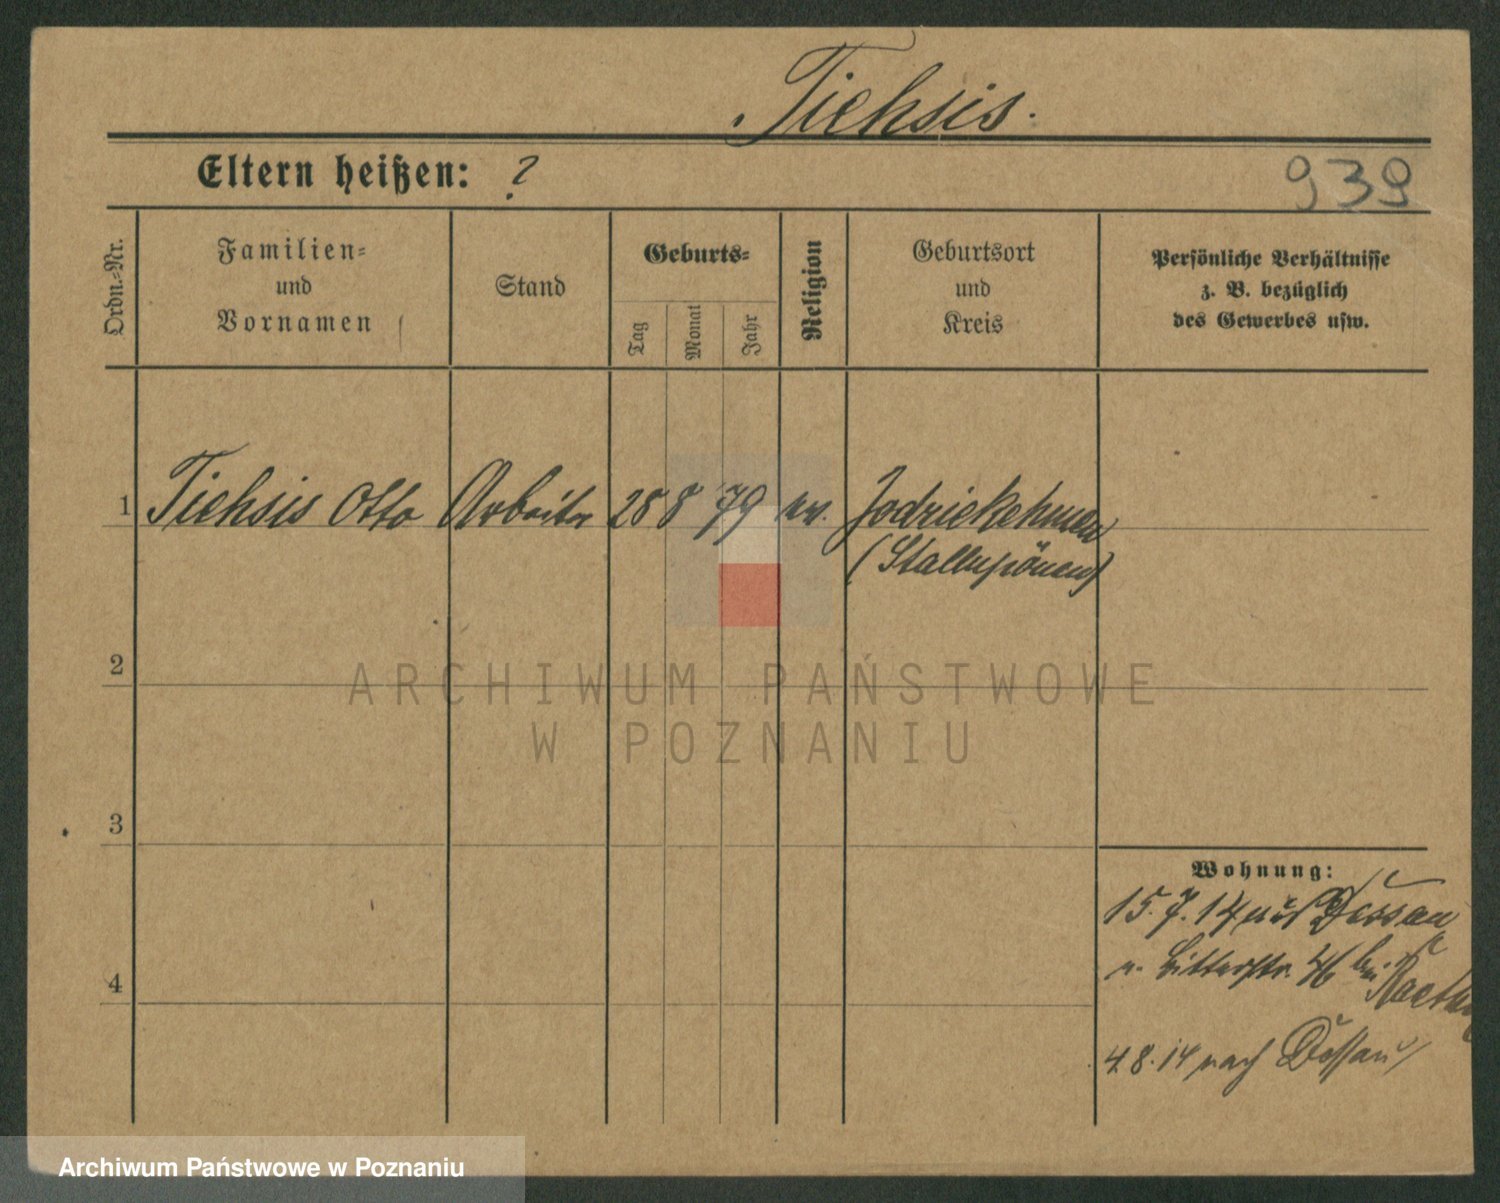 Tiehsis.
Eltern heißen: ?
939
Ordn.-Nr.
Familien-
und
Vornamen
Stand
Geburts-
Tag
Monat
Jahr
Religion
Geburtsort
und
Kreis
Persönliche Verhältnisse
z. B. bezüglich
des Gewerbes usw.
1 Tiehsis Otto Arbeiter 28 8 79 ev. Jodziekehmen
(Stallupönen)
2
ARCHIWUM PAŃSTWOWE
W POZNANIU
3
Wohnung:
15.7.14 aus Dessau
4
n. Bitterstr. 46 bei
4.8.14 nach Dessau
Archiwum Państwowe w Poznaniu